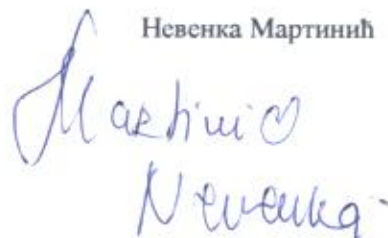 Невенка Мартинић
Martinić
Nevenka